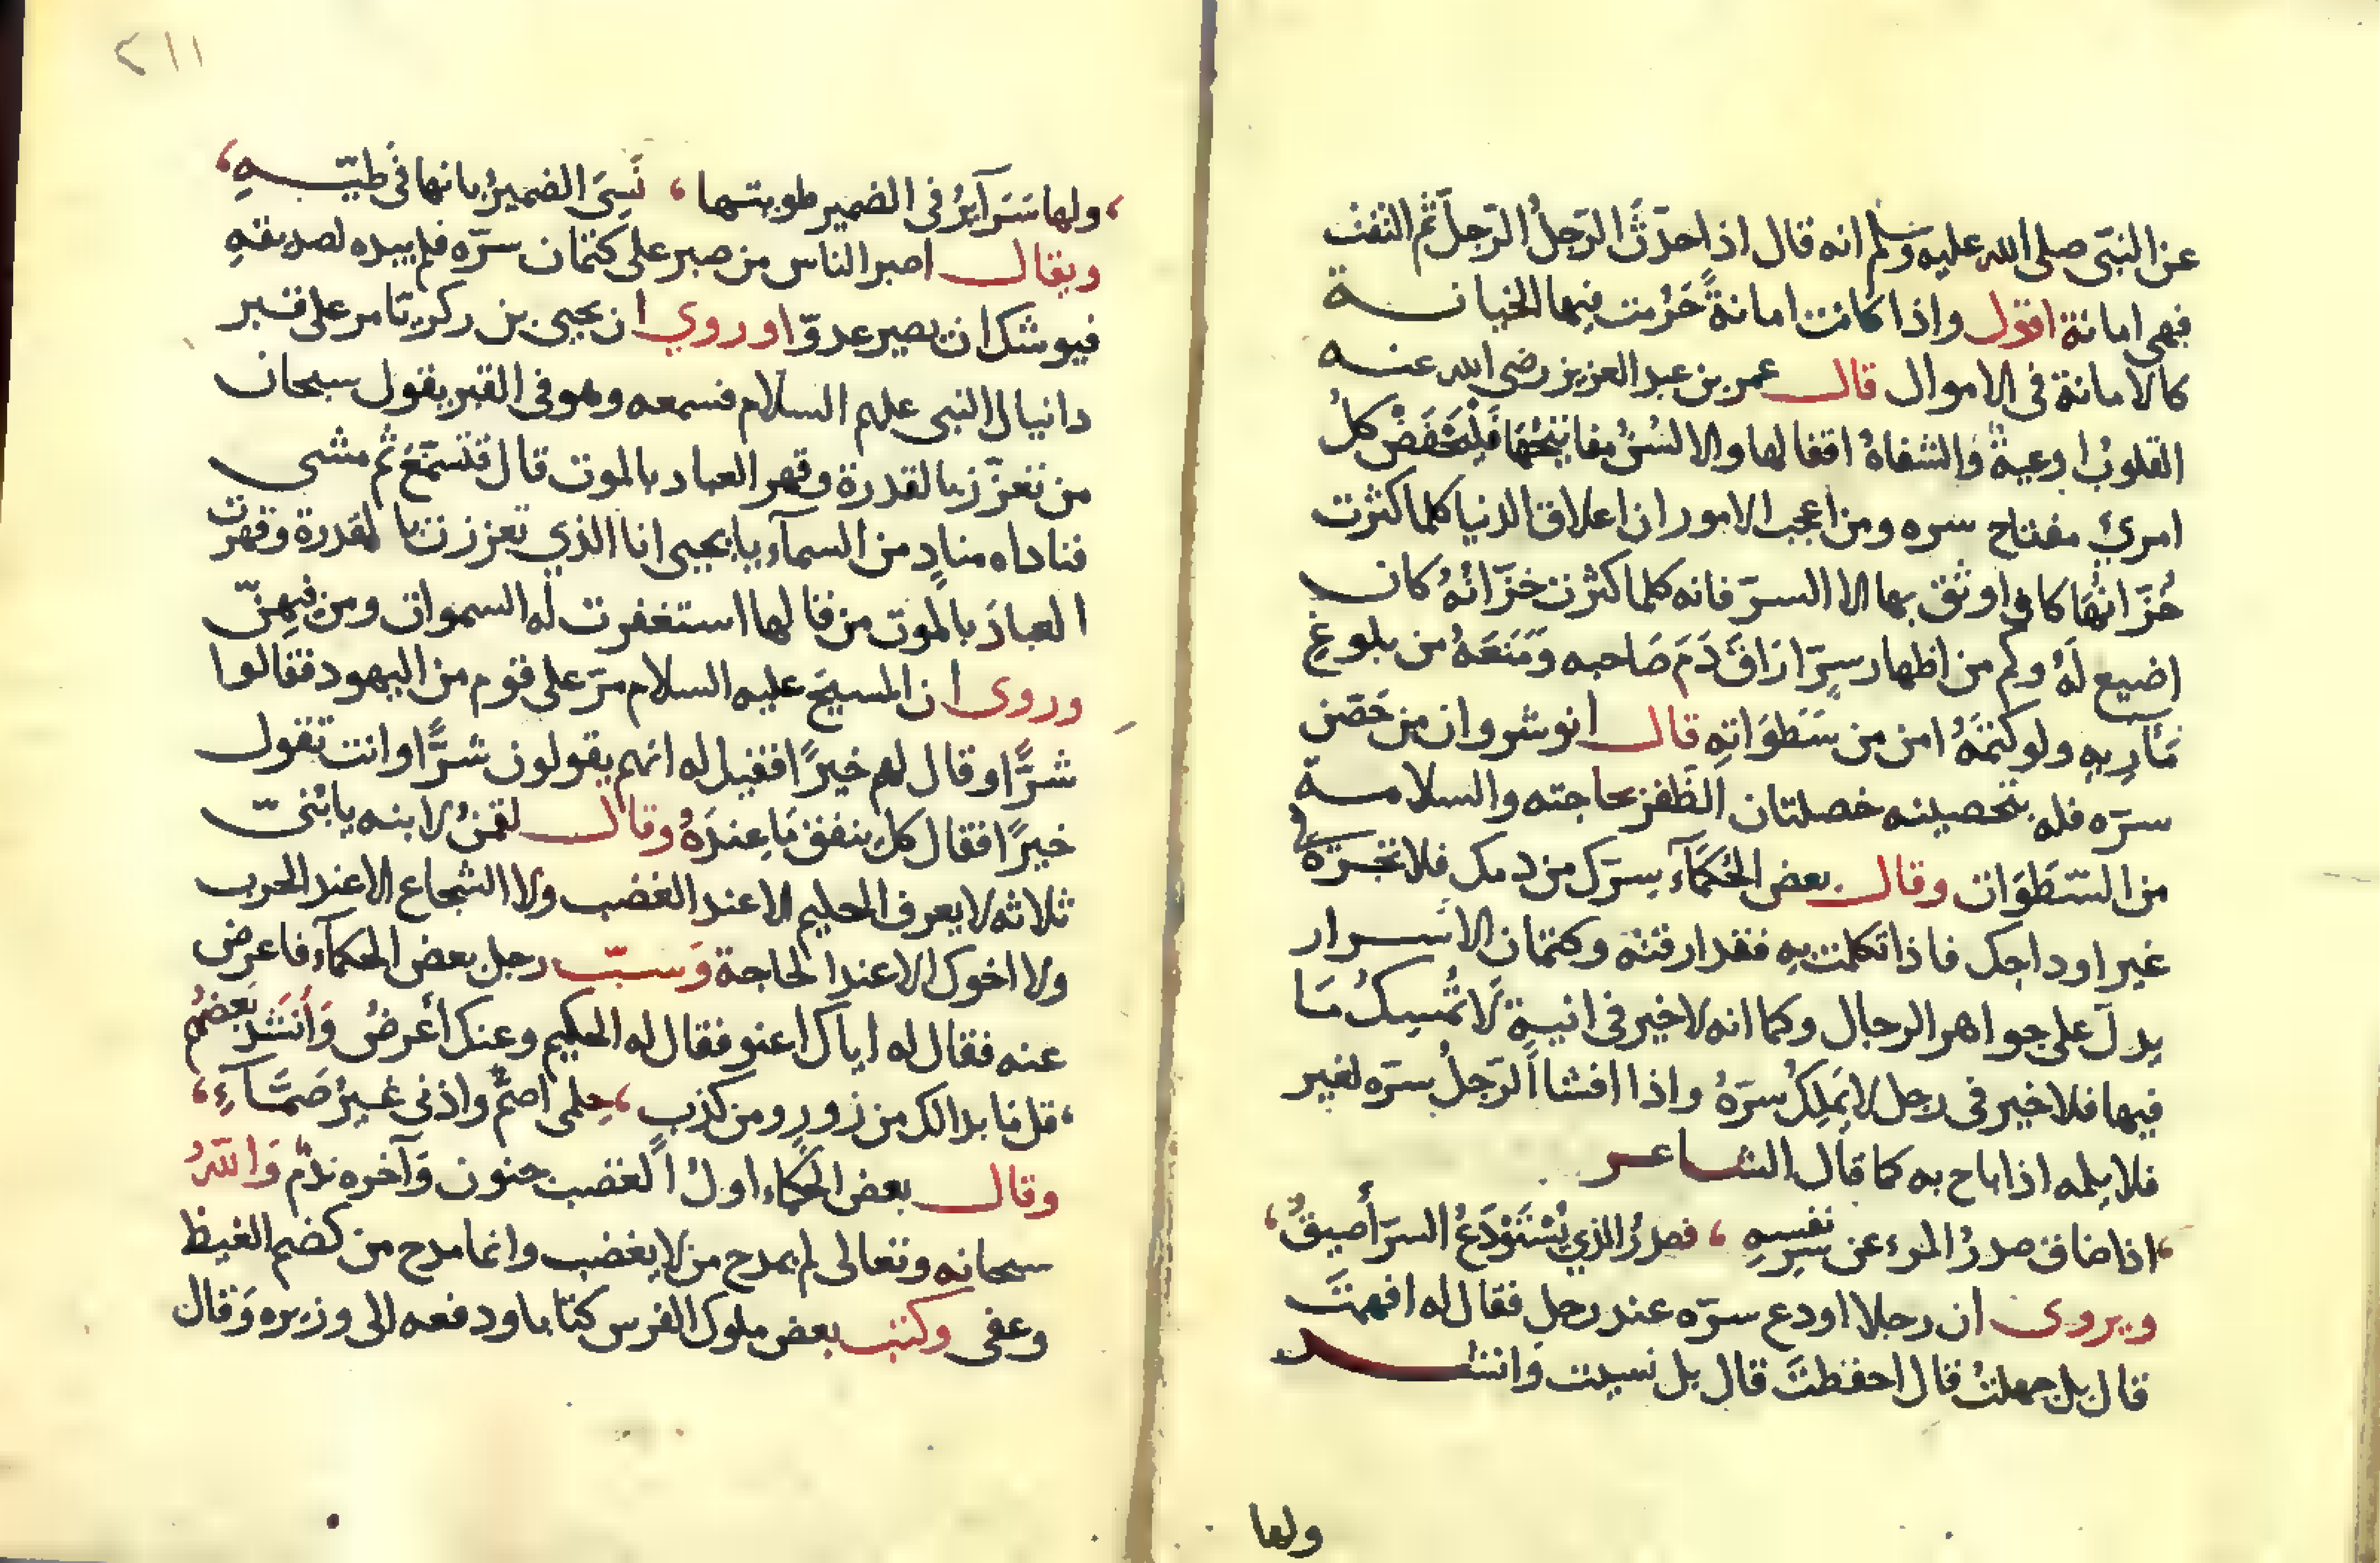 عن النبى صلى الله عليه وسلم انه قال اذا حدّث الرجلُ الرّجلَ ثم التفت
فهى امانة اقول واذا كانت امانةً حَرُمت فيها الخيانــة
كالامانة فى الاموال قال عمر بن عبد العزيز رضى الله عنه
القلوبُ اوعيةٌ والشفاهُ اقفالها والالسُنُ مفاتيحُها فَلْيَحْفَظْ كلُ
امرئٍ مفتاح سره ومن اعجب الامور ان اعلاق الدنيا كلما كثرت
خُزّانُها كان اوثق بها الا السرّ فانه كلما كثرت خزّانُهُ كان
اضيع لَهُ وكم من اظهار سِرّ ارَاقَ دَمَ صَاحبه وَمَنَعَهُ من بلوغِ
مَاربِهِ ولو كتمَهُ امن من سَطَوَاتِهِ قال انوشروان من حَصّن
سرّه فله بتحصينه خصلتان الظّفرُ بحاجته والسلامــة
من السّطَوَات وقال بعض الحُكَمَآءِ سرّك من دمك فلا تجــرّهُ فى
غير اوداجك فاذا تكلمت به فقد ارقتَهُ وكتمان الاســرار
يدلّ على جواهر الرجال وكما انه لا خير فى انيةٍ لَا تُمسِكُ مَا
فيها فلا خير فى رجلٍ لا يَملِكُ سرّهُ واذا افشا الرّجلُ سرّه لغير
فلا يلمه اذا باح به كما قال الشــاعــر
اذا ضاق صدرُ المرء عن سِرّ نفسِهِ ، فصدرُ الذي يُسْتَوْدَعُ السرّ أضيقُ ،
ويروى ان رجلا اودع سرّه عند رجلٍ فقال له افهمتَ
قال بل جهلتُ قال احفظتَ قال بل نسيت وَانشــد
ولها
٢١١
، ولها سَرَآئِرُ فى الضمير طويتــها ، نَسِىَ الضميرُ بانها فى طيّــهِ ،
ويقال اصبر الناس من صبر على كتمان سرّه فلم يبده لصديقهِ
فيوشك ان يصير عدوّا وروي ان يحيى بن زكريّا مر على قبر
دانيال النبى عليهم السلام فسمعه وهو فى القبر يقول سبحان
من تعزّز بالقدرة وقهر العباد بالموت قال فتسمّعَ ثم مشى
فناداه منادٍ من السمآءِ يا يحيى انا الذي تعززت بالقدرة وقهرت
العبادَ بالموت من قالها استغفرت له السموات ومن فيهِنّ
وروى ان المسيحَ عليه السلام مرّ على قوم من اليهود فقالوا
شرًّا وقال لهم خيرًا فقيل له انهم يقولون شرًّا وانت تقول
خيرًا فقال كل ينفق مَا عندَهُ وقال لقمنُ لابنه يابُنىّ
ثلاثه لا يعرف الحليم الا عند الغضب ولا الشجاع الا عند الحرب
ولا اخوك الا عند الحاجة وَسبّ رجل بعض الحكمآءِ فاعرض
عنه فقال له اياك اعنى فقال له الحكيم وعنك أُعرضُ وَأَنشَدَ بَعضُهُم
، قل ما بدا لك من زورٍ ومن كذبٍ ، حِلمى اصَمُّ واذنى غَــيرُ صَمَّآءِ ،
وقال بعض الحكماءِ اولُ الغضب جنون وَآخره نَدَمٌ وَاللّهُ
سبحانه وتعالى لم يمدح من لا يغضب وانما مدح من كضم الغيظ
وعفى وكتب بعض ملوك الفرس كتابا ودفعه الى وزيره وَقال